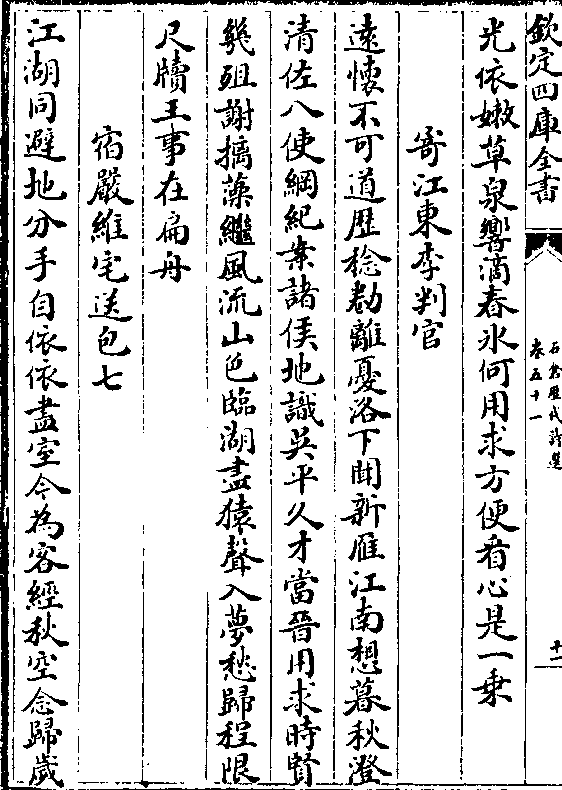 欽定四庫全書
石倉歷代詩選
卷五十一
十一
光依嫩草泉響滴春氷何用求方便看心是一乗
寄江東李判官
遠懷不可道歴稔勌離憂洛下聞新雁江南想暮秋澄
清佐八使綱紀案諸侯地識吳平久才當晉用求時賢
幾殂謝摛藻繼風流山色臨湖盡猿聲入夢愁歸程限
尺牘王事在扁舟
宿嚴維宅送包七
江湖同避地分手自依依盡室今為客經秋空念歸歲